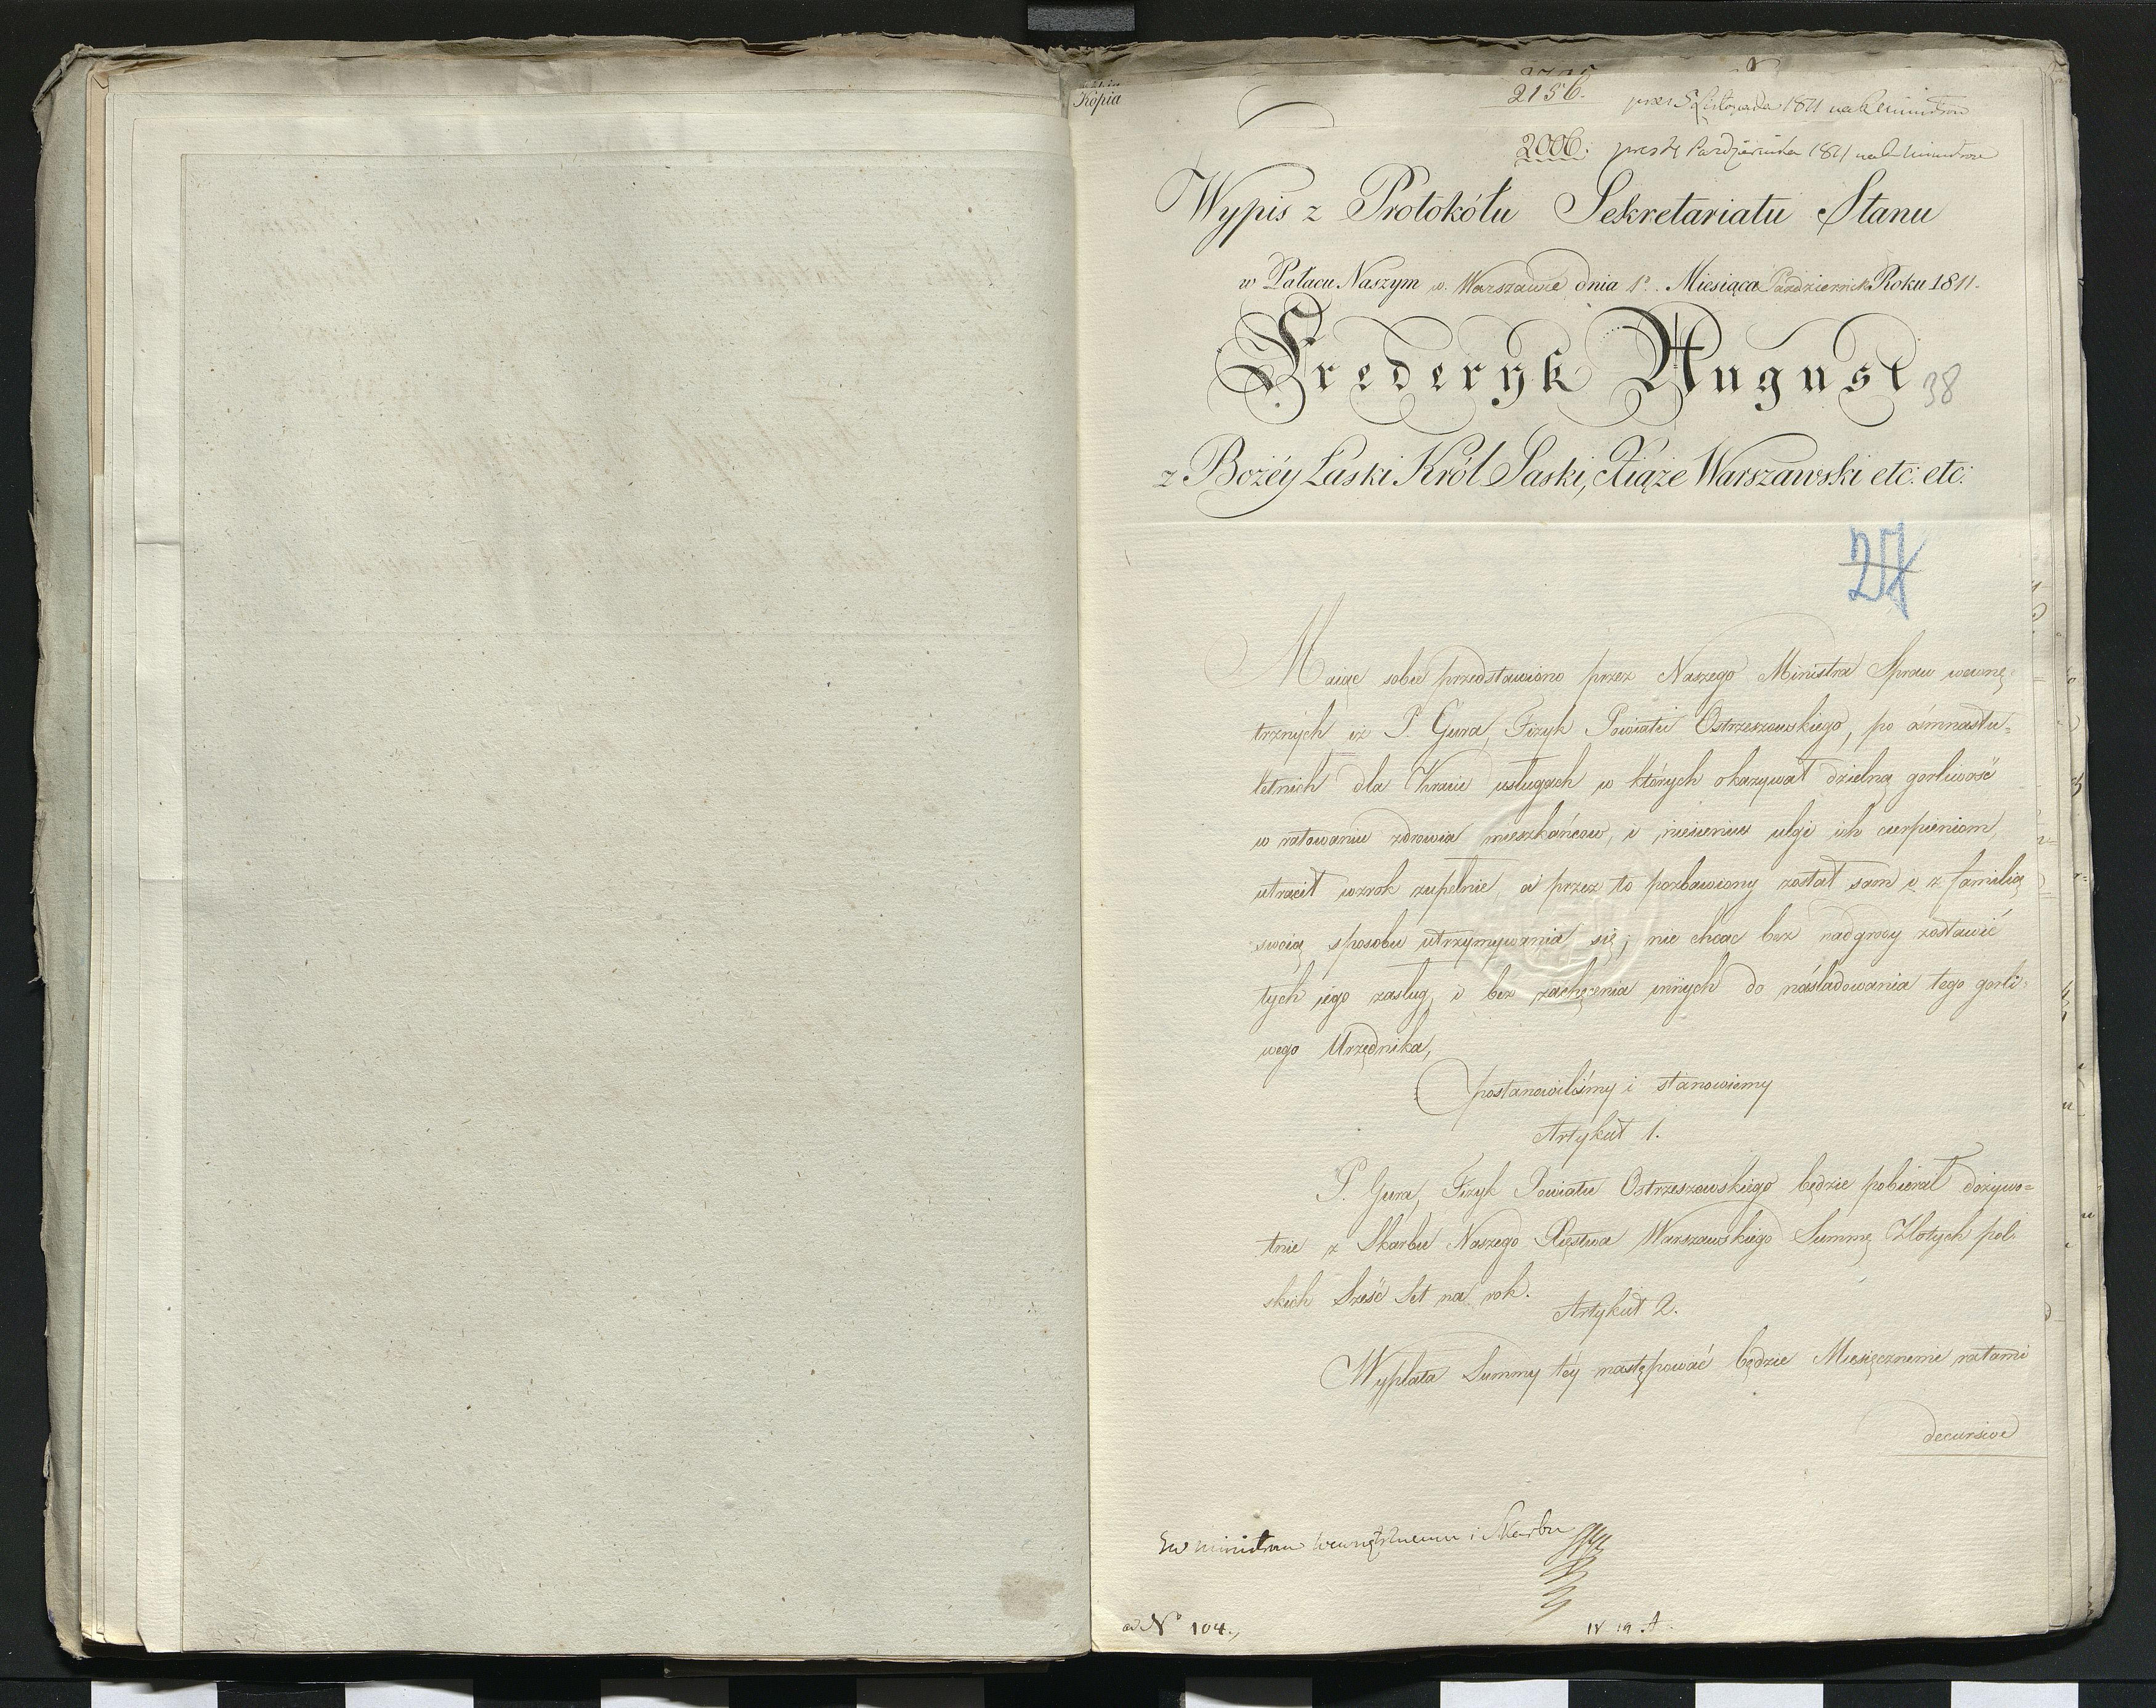 Kopia
2156. prez 5 Listopada 1811 na
2006. prez 4 Października 1811 na
Wypis z Protokółu Sekretariatu Stanu
w Pałacu Naszym w. Warszawie dnia 1º. Miesiąca Październik Roku 1811.
Frederyk August
38
z Bożéy Łaski Król Saski, Xiąże Warszawski etc: etc:
27
Maiąc sobie przedstawiono przez Naszego Ministra Spraw wewnę=
trznych iż P. Gura, Fizyk Powiatu Ostrzeszowskiego, po ośmnastu=
letnich dla Kraiu usługach w których okazywał dzielną gorliwość
w ratowaniu zdrowia mieszkańcow, i niesieniu ulgi ich cierpieniom,
utracił wzrok zupełnie, a przez to pozbawiony został sam i z familią
swoią sposobu utrzymywania się; nie chcąc bez nadgrody zostawić
tych iego zasług, i bez zachęcenia innych do naśladowania tego gorli=
wego Urzędnika,
postanowiliśmy i stanowiemy
Artykuł 1.
P. Gura, Fizyk Powiatu Ostrzeszowskiego będzie pobierał dożywo=
tnie z Skarbu Naszego Xięstwa Warszawskiego Summę Złotych pol=
skich Sześć Set na rok.
Artykuł 2.
Wypłata Summy téy następować będzie Miesięcznemi ratami
decursive
wewnętrznemu i Skarbu
ad Nº 104.
IV 19 A.